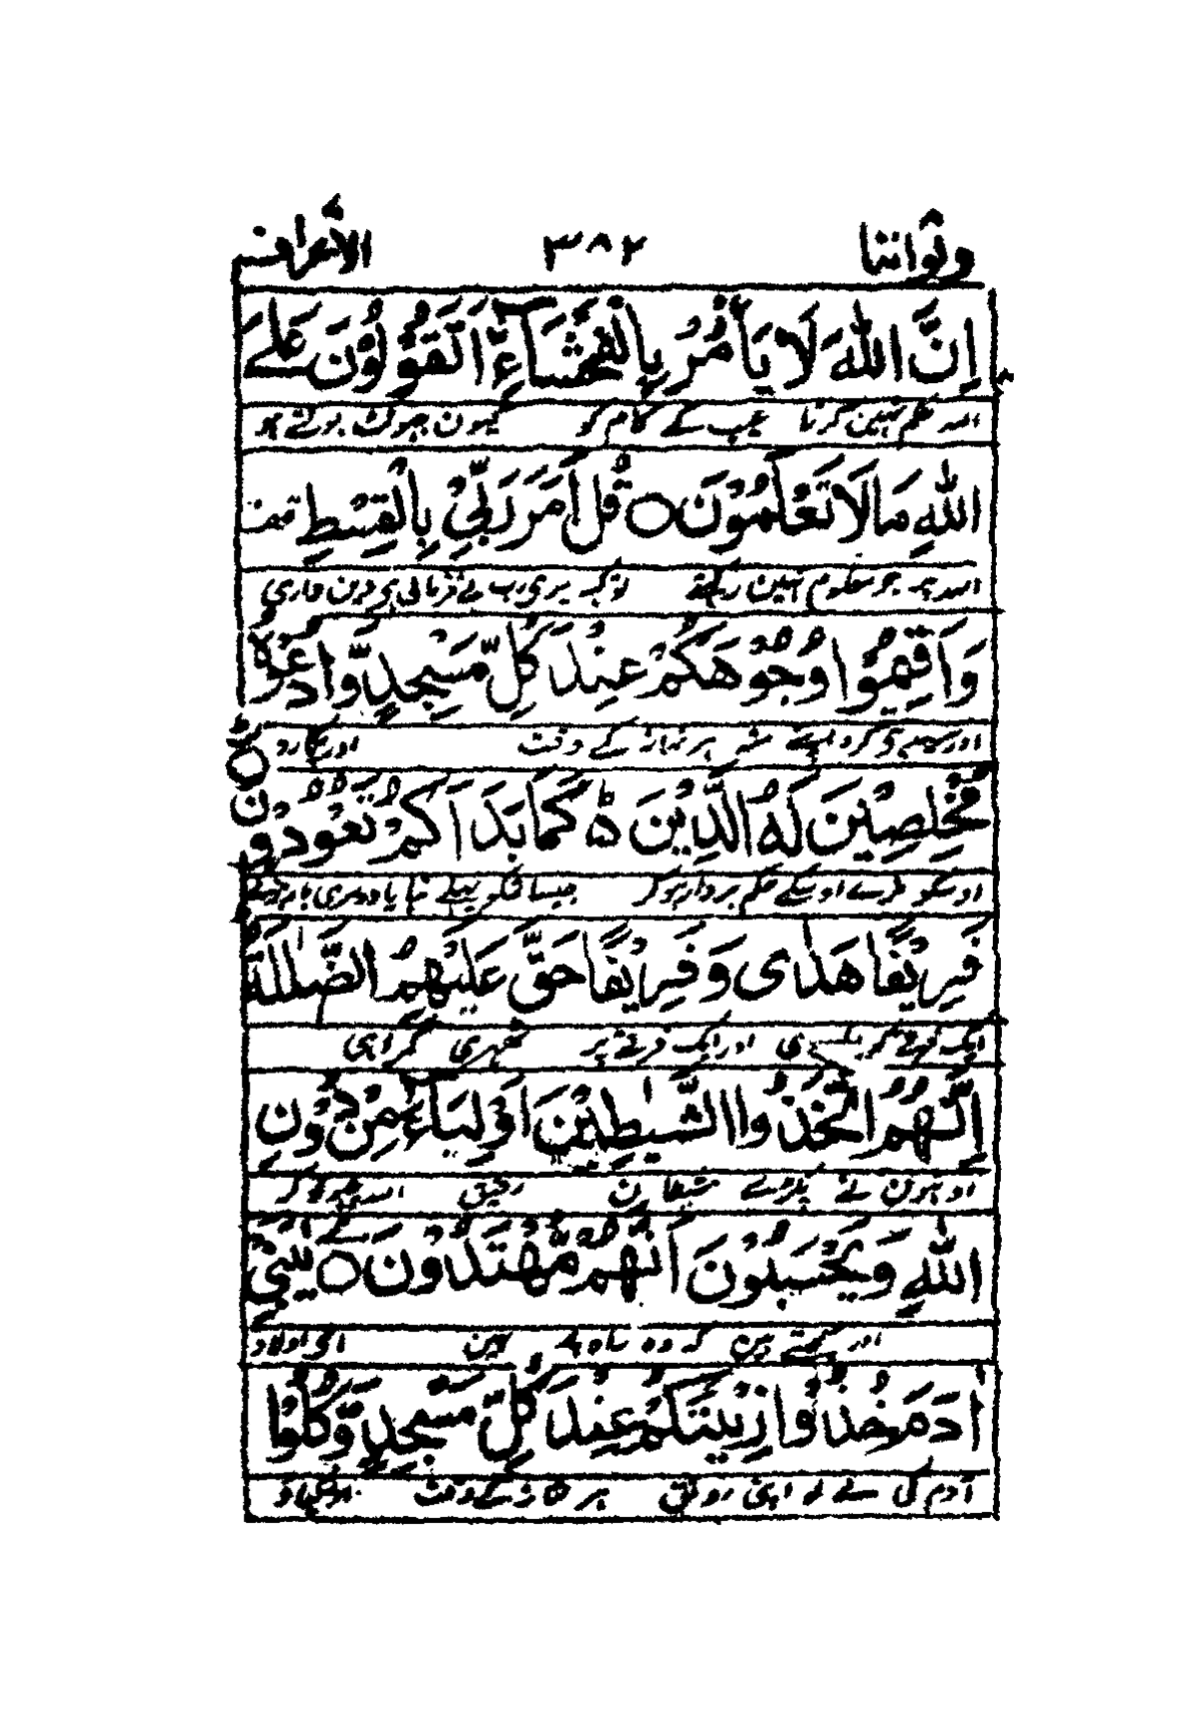 ولواننا ٣٨٢ الاعراف
اِنَّ اللّٰهَ لَا يَاْمُرُ بِالْفَحْشَآءِ اَتَقُوْلُوْنَ عَلَى
اللہ حکم نہین کرتا عیب کے کام کو کیون جھوٹ بولتے ہو
اللّٰهِ مَا لَا تَعْلَمُوْنَ ○ قُلْ اَمَرَ رَبِّيْ بِالْقِسْطِ
اللہ پر جو معلوم نہین رکھتے تو کہہ میری رب نے فرمائی ہی
وَاَقِيْمُوْا وُجُوْهَكُمْ عِنْدَ كُلِّ مَسْجِدٍ وَّادْعُوْهُ
اور سیدھی کرو اپنے منہ ہر نماز کے وقت اور پکارو
مُخْلِصِيْنَ لَهُ الدِّيْنَ ۵ كَمَا بَدَاَكُمْ تَعُوْدُوْنَ ○
اوسکو نرے اوسکے حکم بردار ہوکر جیسا تمکو پہلے بنایا دوسری بار
فَرِيْقًا هَدٰى وَفَرِيْقًا حَقَّ عَلَيْهِمُ الضَّلٰلَةُ
ایک فرقے کو اور ایک فرقے پر ٹھہری گمراہی
اِنَّهُمُ اتَّخَذُوا الشَّيٰطِيْنَ اَوْلِيَآءَ مِنْ دُوْنِ
اونہون نے پکڑے شیطان رفیق اللہ چھوڑکر
اللّٰهِ وَيَحْسَبُوْنَ اَنَّهُمْ مُّهْتَدُوْنَ ○ يٰبَنِيْ
اور سمجھتے ہین کہ وہ راہ پر ہین ای اولاد
اٰدَمَ خُذُوْا زِيْنَتَكُمْ عِنْدَ كُلِّ مَسْجِدٍ وَّكُلُوْا
آدم کی لے لو اپنی رونق ہر نماز کے وقت اور کھاؤ